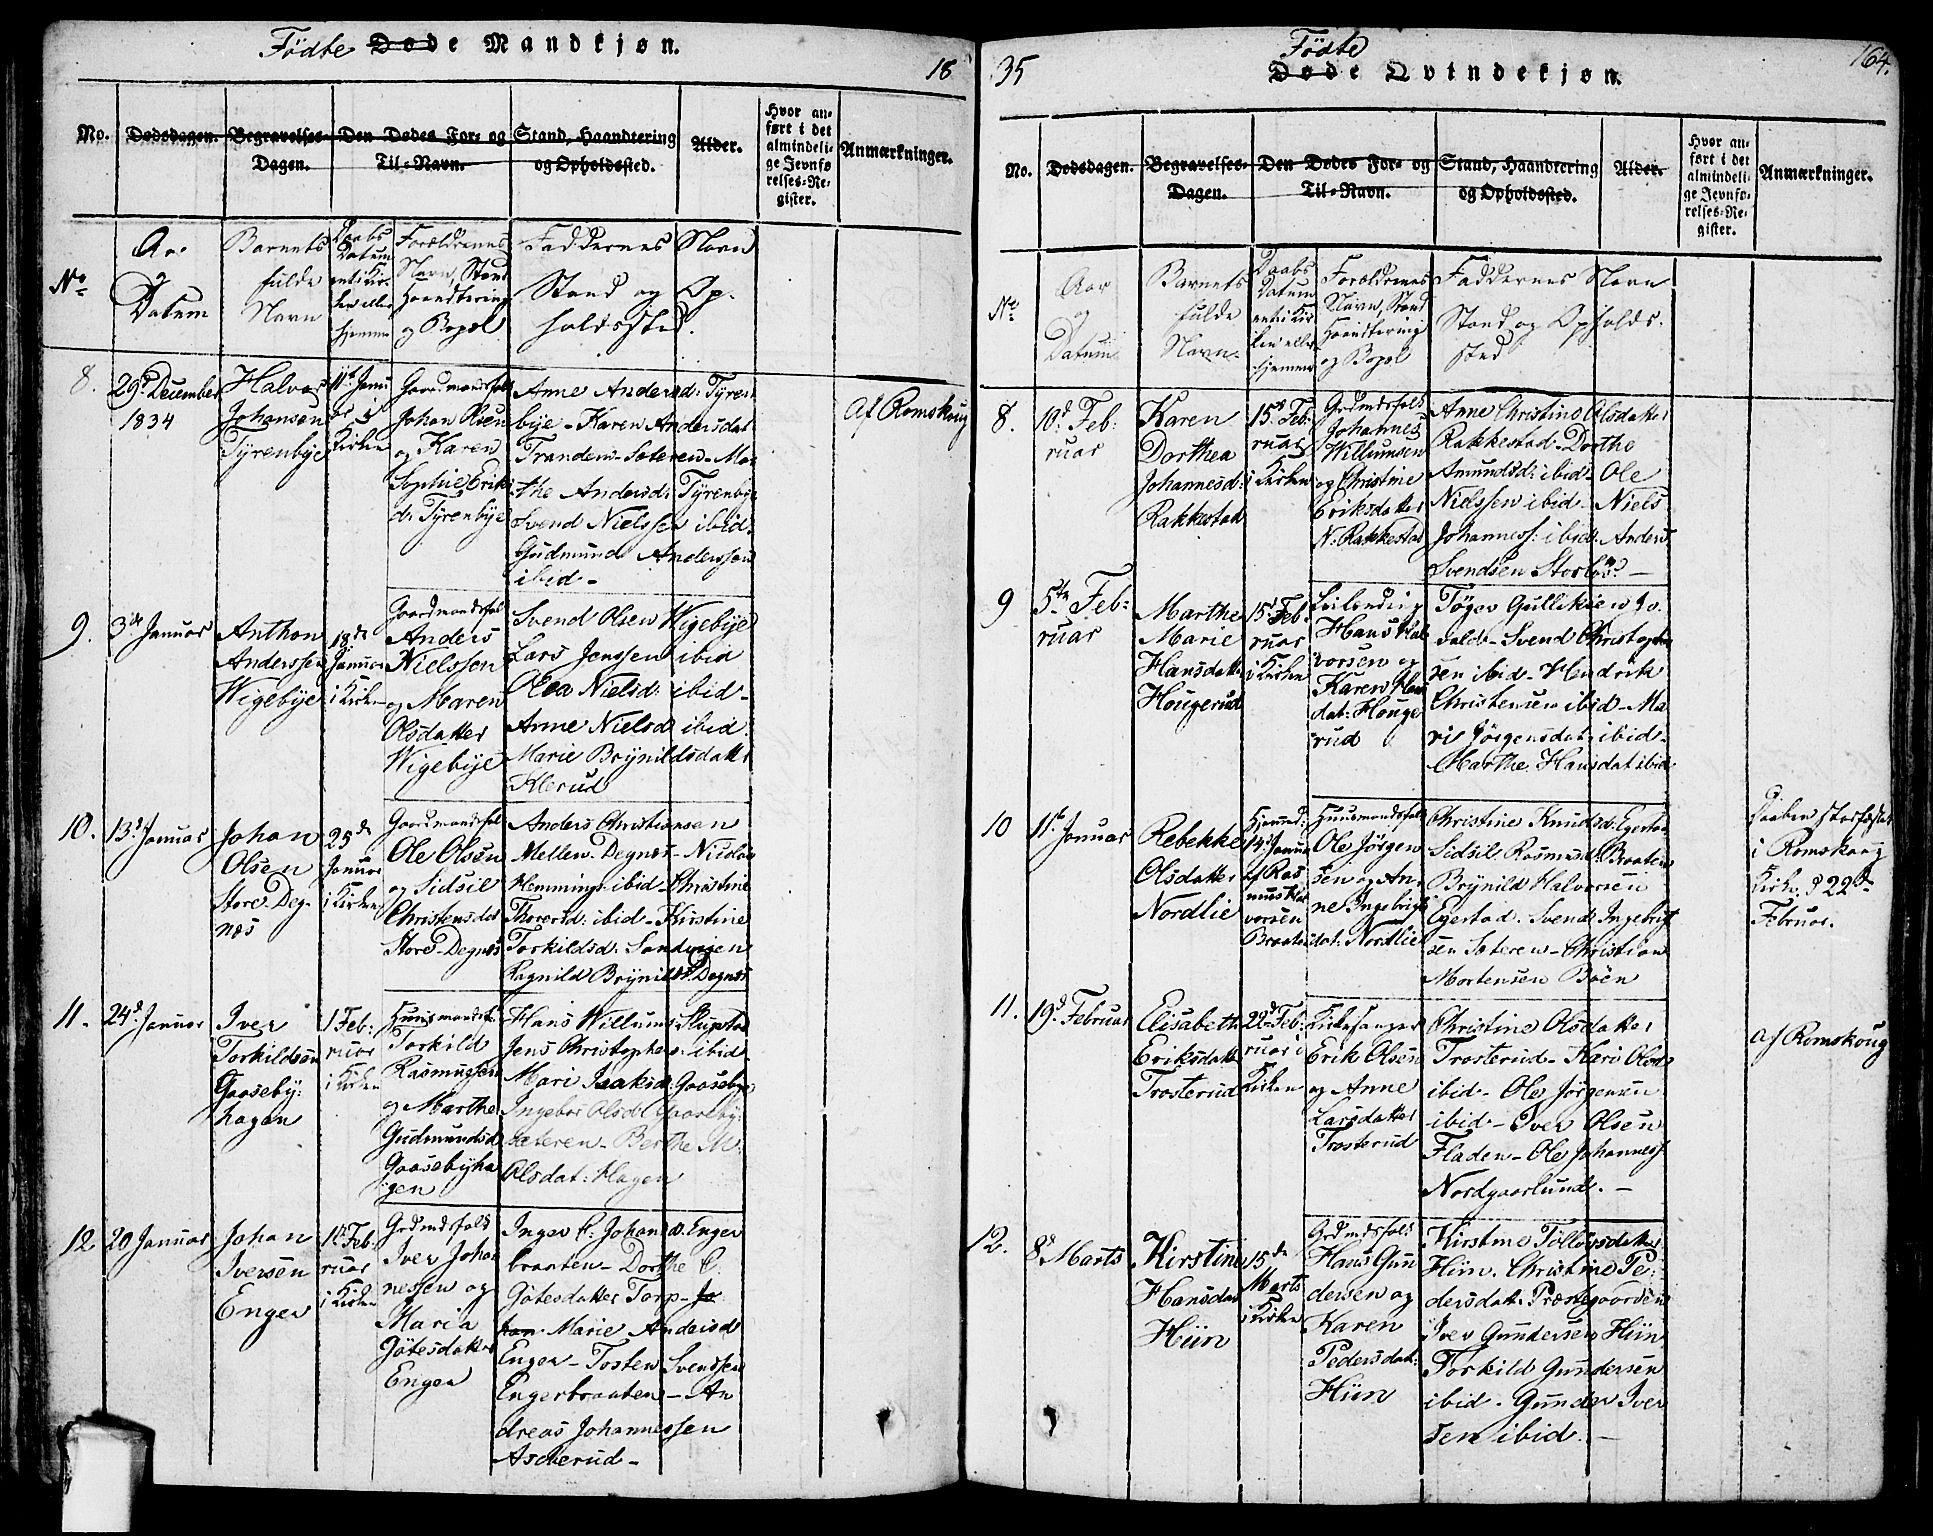 Fødte Døde Mandkjøn.
18
No.
Dødsdagen.
Begravelses-
Dagen.
Den Dødes For- og
Til-Navn.
Stand, Haandtering
og Opholdssted.
Alder.
Hvor an-
ført i det
almindeli-
ge Jevnfø
relses-Re-
gister.
Anmærkninger.
No
Aar
og
Datum
Barnets
fulde
Navn
Daabs
Datum
enten i Kir-
ken eller
hjemme
Forældrenes
Navn, Stand
Haandtering
og Bopæl
Faddernes Navn
Stand og Op-
holdssted.
8.
29d December
1834
Halvor
Johansen
Tyrenbye
11te Janu
ar i
Kirken
Gaardmandsfolk
Johan
og Karen
Sophie Erik
d: Tyrenbye
Anne Andersd: Tyren
bye - Karen Andersdat
Tranden - Sæteren - Mar
the Andersd: Tyrenbye
Svend Nielssen ibid -
Gudmund Anderssen
ibid -
af Romskoug
9.
3die Januar
Anthon
Anderssen
Wigebye
18de
Januar
i Kirken
Gaardmandsfolk
Anders
Nielssen
og Maren
Olsdatter
Wigebye
Svend Olsen Wigebye
Lars Jenssen ibid
Olea Nielsd: ibid -
Anne Nielsd ibid
Marie Brynildsdatter
Klerud
10.
13d Januar
Johan
Olsen
Store Deg-
næs
25de
Januar
i Kirken
Gaardmandsfolk
Ole Olsen
og Sidsil
Christensdat
Store-Degnæs
Anders Christiansen
Mellem-Degnæs - Nicolai
Hemmings: ibid - Christine
Thorersd: ibid - Kirstine
Torkildsd: Sandvigen
Ragnild Brynilds: Degnæs
11.
24d Januar
Iver
Torkildsen
Gaaseby-
hagen
1 Feb:
ruar
i Kirken
Huusmandsf:
Torkild
Rasmussen
og Marthe
Gudmundsd
Gaasebyha
gen
Hans Willums: Slupstad
Jens Christophers: ibid -
Mari Isaksd: Gaasebye
Ingebor Olsd: Gaaseby:
sæteren - Berthe M:
Olsdat: Hagen
12
20 Januar
Johan
Iversen
Enger
1te Feb:
ruar
i Kirken
Grdmdsfolk
Iver Johan
nessen og
Maria
Götesdatter
Enger
Inger C: Johansd. Enger
braaten - Dorthe C.
Götesdatter Torp - Jo
han. Marie Andersd
Enger - Tosten Svendsen
Engerbraaten - An
dreas Johannessen
Ascherud -
35
Fødte
Døde Qvindekjøn.
164.
No.
Dødsdagen.
Begravelses-
Dagen.
Den Dødes For- og
Til-Navn.
Stand, Haandtering
og Opholdssted.
Alder.
Hvor an-
ført i det
almindeli-
ge Jevnfø-
relses-Re-
gister.
Anmærkninger.
No
Aar
og
Datum
Barnets
fulde
Navn
Daabs
Datum
enten i Kir
ken eller
hjemme
Forældrenes
Navn, Stand
Haandtering
og Bopæl
Faddernes Navn
Stand og Opholds-
sted
8.
10d Feb:
ruar
Karen
Dorthea
Johannesd:
Rakkestad
15de Feb:
ruar
i Kirken
Grdmdsfolk
Johannes
Willumsen
og Christine
Eriksdatter
N: Rakkestad
Anne Christine Olsdatter
Rakkestad - Dorthe
Amundsd: ibid - Ole
Nielssen ibid - Niels
Johanness: ibid: Anders
Svendsen
9
5te Feb:
ruar
Marthe
Marie
Hansdatter
Hougerud
15d Feb:
ruar
i Kirken
Leilending
Hans Hal
vorsen og
Karen
dat: Houge
rud
Töger Gulliksen
Svend Christophe
sen ibid - Hendrik
Christensen ibid - Ma
ri Jörgensdat: ibid -
Marthe Hansdat ibid
10
11te Januar
Rebekke
Olsdatter
Nordlie
Hjemmed:
14d Janua
af Ras
mus Hal
vorsen
Braaten
Huusmandsfolk
Ole Jörgen
sen og An-
ne Ingebrigt
dat: Nordlie
Christine Knudsd: Egestad
Sidsil Rasmusd: Braaten
Brynild Halvorsen
Egestad. Svend Ingebrigt
sen Sæteren - Christian
Mortensen Böen
Daaben stadfæstet
i Romskoug
Kirke d 22de
Februar.
11.
19d Februar
Elisabeth
Eriksdatter
Trosterud
22d Feb:
ruar i
Kirken
Kirkesanger
Erik Olsen
og Anne
Larsdatter
Trosterud
Christine Olsdatter
Trosterud - Kari Olsd
ibid - Ole Jörgensen
ibid - Iver Olsen
Fladen - Ole Johanness
Nordgaarlund. -
af Romskoug
12.
8d Marts
Kirstine
Hansdat
Hiin
15de
Marts
i Kirken
Grdmdsfolk
Hans Gun
dersen og
Karen
Pedersdat:
Hiin
Kirstine Tollövsdatter
Hiin. Christine Pe:
dersdat: Præstegaarden
Iver Gundersen Hiin
Torkild Gundersen
ibid - Gunder Iver
sen ibid. -